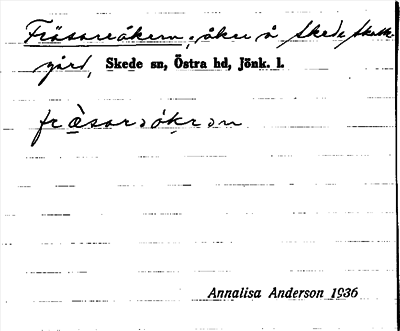 Fräsareåkern, åker å Skede skatte-
gård, Skede sn, Östra hd, Jönk. l.
fr&#x24;̀sarɔókrɔn
Annalisa Anderson 1936